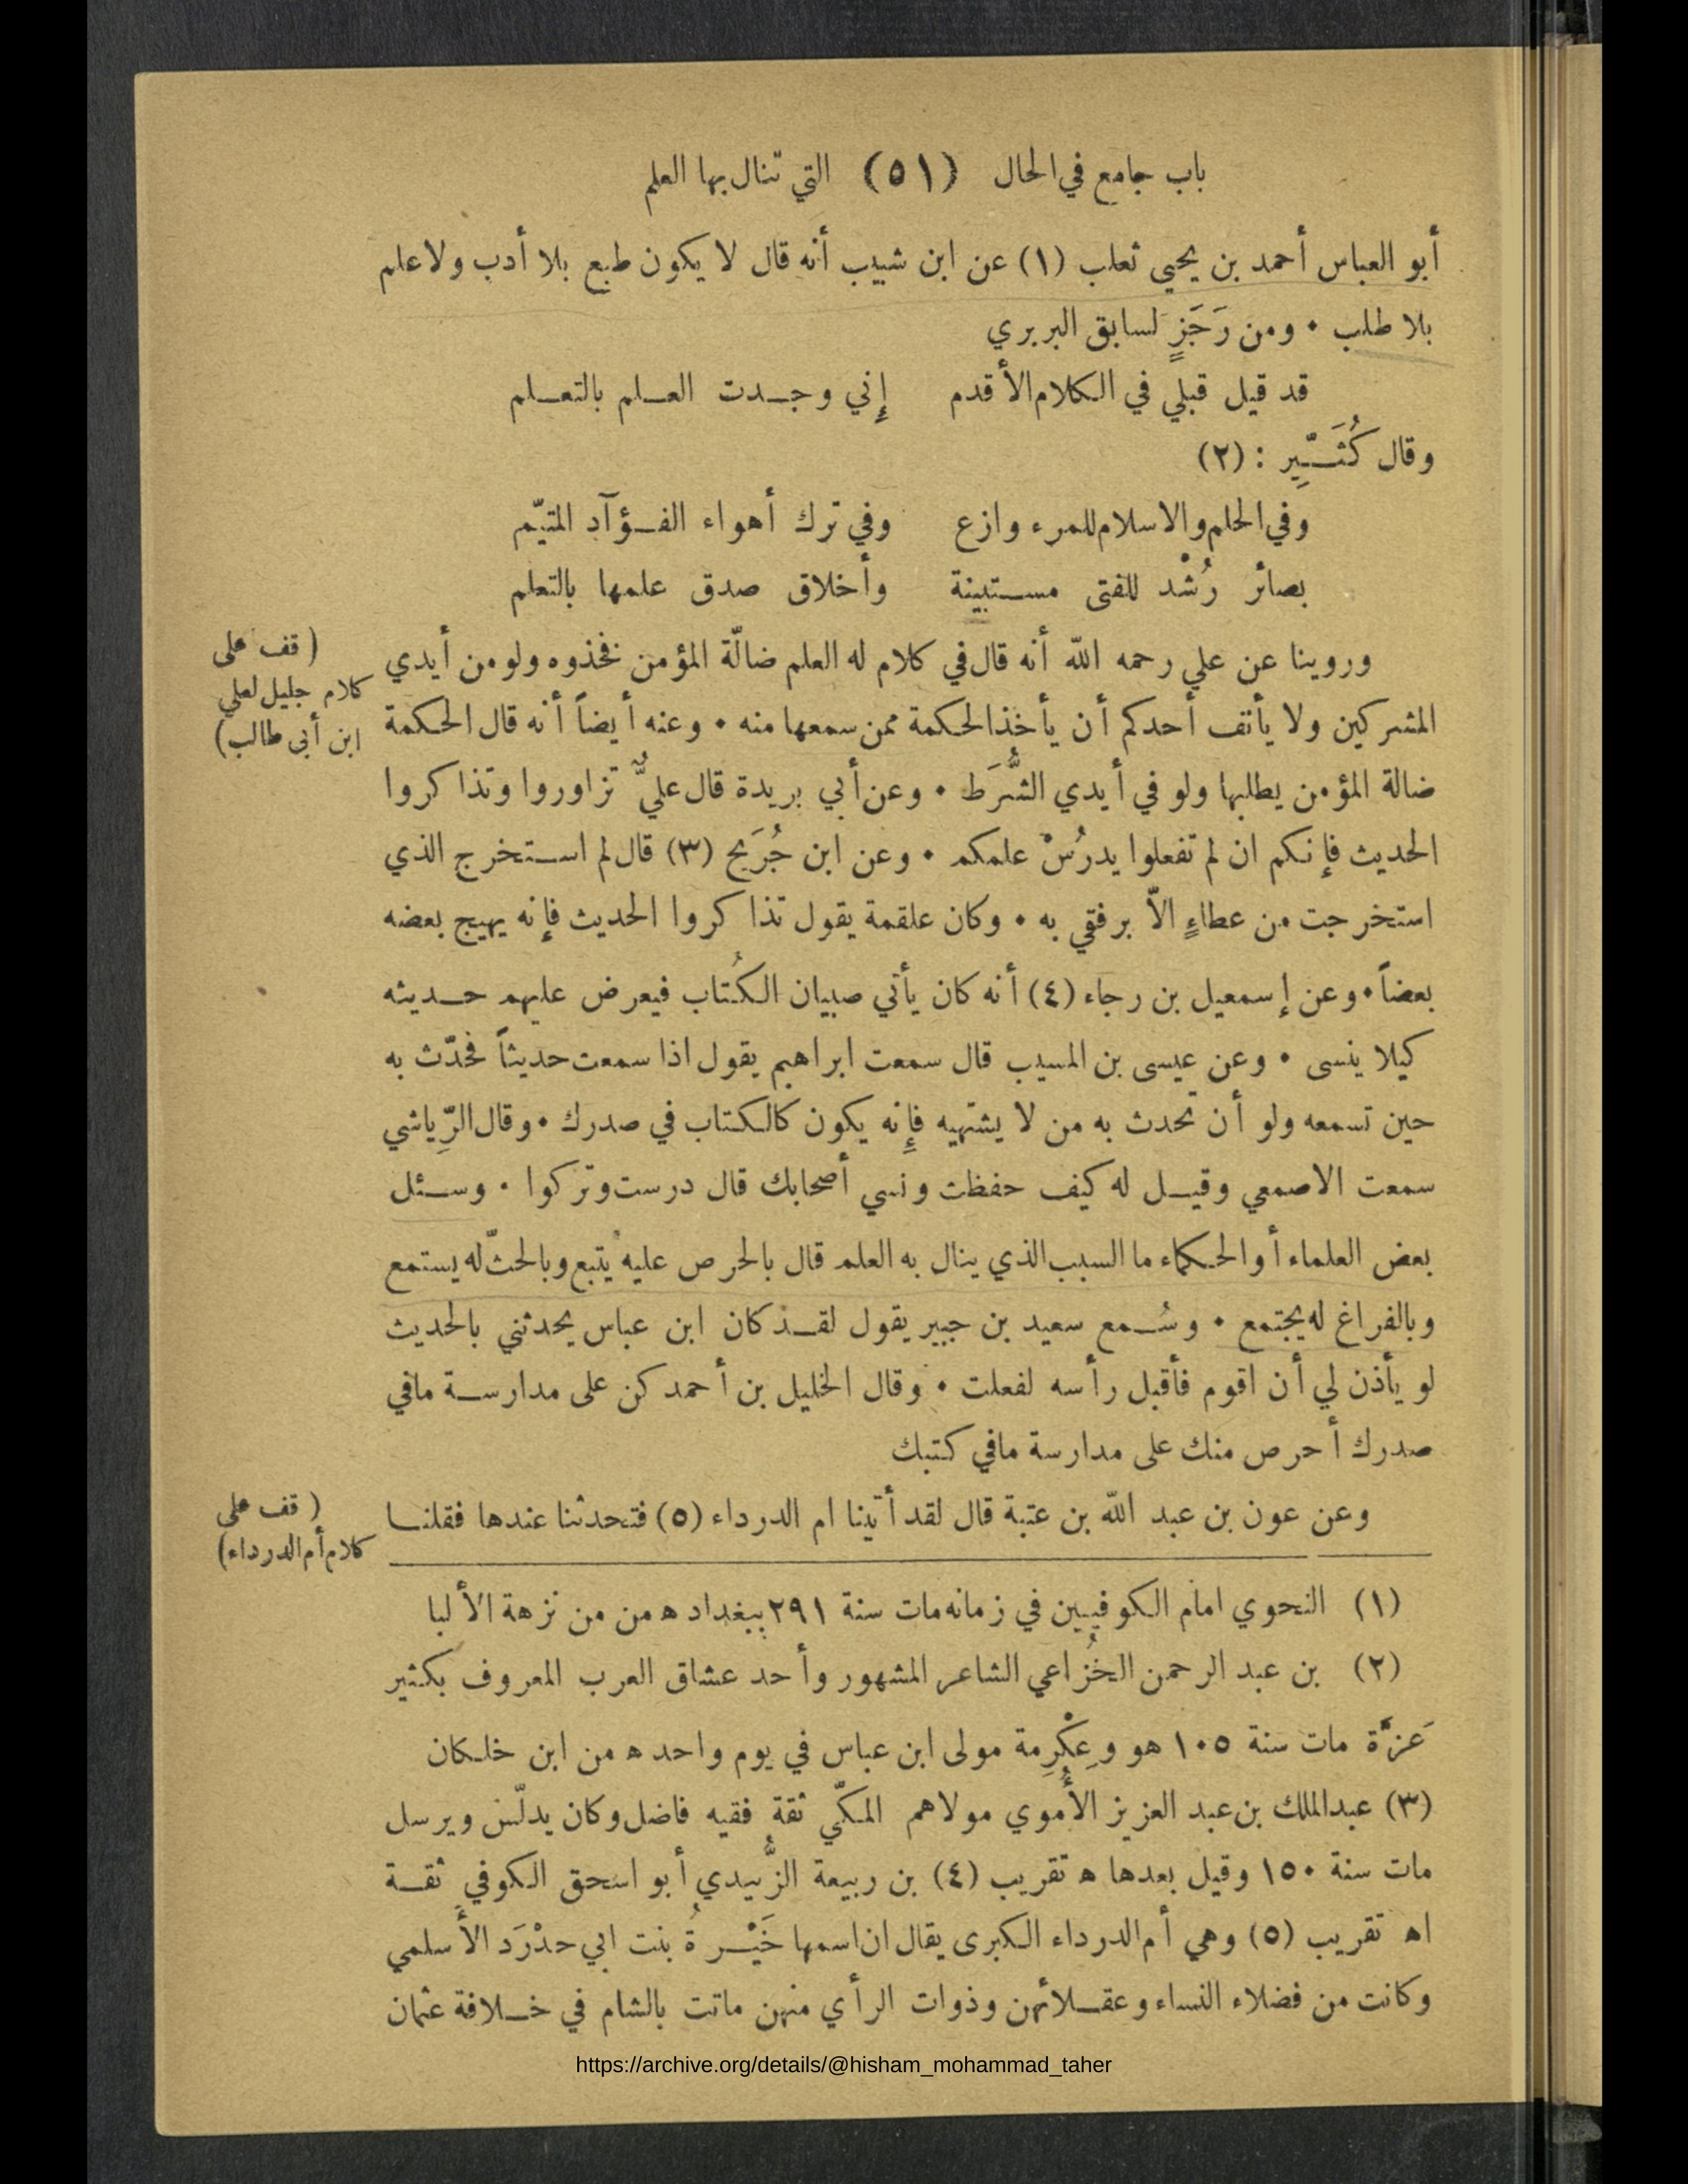 باب جامع في الحال (٥١) التي تنال بها العلم
أبو العباس أحمد بن يحيى ثعلب (١) عن ابن شبيب أنه قال لا يكون طبع بلا أدب ولا علم
بلا طلب • ومن رَجَزٍ لسابق البربري
قد قيل قبلي في الكلام الأقدم إِني وجدت العلم بالتعلم
وقال كُثَيِّر : (٢)
وفي الحلم والاسلام للمرء وازع وفي ترك أهواء الفؤآد المتيّم
بصائر رُشْد للفتى مستبينة وأخلاق صدق علمها بالتعلم
وروينا عن علي رحمه اللّه أنه قال في كلام له العلم ضالّة المؤمن فخذوه ولو من أيدي
(قف على
كلام جليل لعلي
ابن أبي طالب)
المشركين ولا يأنف أحدكم أن يأخذ الحكمة ممن سمعها منه • وعنه أيضاً أنه قال الحكمة
ضالة المؤمن يطلبها ولو في أيدي الشُّرَط • وعن أبي بريدة قال عليٌّ تزاوروا وتذاكروا
الحديث فإنكم ان لم تفعلوا يدرُسْ علمكم • وعن ابن جُرَيج (٣) قال لم استخرج الذي
استخرجت من عطاءٍ الاّ برفقي به • وكان علقمة يقول تذاكروا الحديث فإنه يهيج بعضه
بعضاً • وعن إسمعيل بن رجاء (٤) أنه كان يأتي صبيان الكُتاب فيعرض عليهم حديثه
كيلا ينسى • وعن عيسى بن المسيب قال سمعت ابراهيم يقول اذا سمعت حديثاً فحدّث به
حين تسمعه ولو أن تحدث به من لا يشتهيه فإِنه يكون كالكتاب في صدرك • وقال الرِّياشي
سمعت الاصمعي وقيل له كيف حفظت ونسي أصحابك قال درست وتركوا • وسئل
بعض العلماء أو الحكماء ما السبب الذي ينال به العلم قال بالحرص عليه يُتبع وبالحثّ له يستمع
وبالفراغ له يجتمع • وسُمع سعيد بن جبير يقول لقد كان ابن عباس يحدثني بالحديث
لو يأذن لي أن اقوم فأقبل رأسه لفعلت • وقال الخليل بن أحمد كن على مدارسة مافي
صدرك أحرص منك على مدارسة مافي كتبك
وعن عون بن عبد اللّه بن عتبة قال لقد أتينا ام الدرداء (٥) فتحدثنا عندها فقلنا
(قف على
كلام أم الدرداء)
(١) النحوي امام الكوفيين في زمانه مات سنة ٢٩١ ببغداد ه من من نزهة الألبا
(٢) بن عبد الرحمن الخُزاعي الشاعر المشهور وأحد عشاق العرب المعروف بكثير
عَزَّة مات سنة ١٠٥ هو وعِكْرِمة مولى ابن عباس في يوم واحد ه من ابن خلكان
(٣) عبدالملك بن عبد العزيز الأُموي مولاهم المكّي ثقة فقيه فاضل وكان يدلّس ويرسل
مات سنة ١٥٠ وقيل بعدها ه تقريب (٤) بن ربيعة الزُّبيدي أبو اسحق الكوفي ثقة
اه تقريب (٥) وهي أم الدرداء الكبرى يقال ان اسمها خَيْرةُ بنت ابي حدْرَد الأسلمي
وكانت من فضلاء النساء وعقلائهن وذوات الرأي منهن ماتت بالشام في خلافة عثمان
https://archive.org/details/@hisham_mohammad_taher